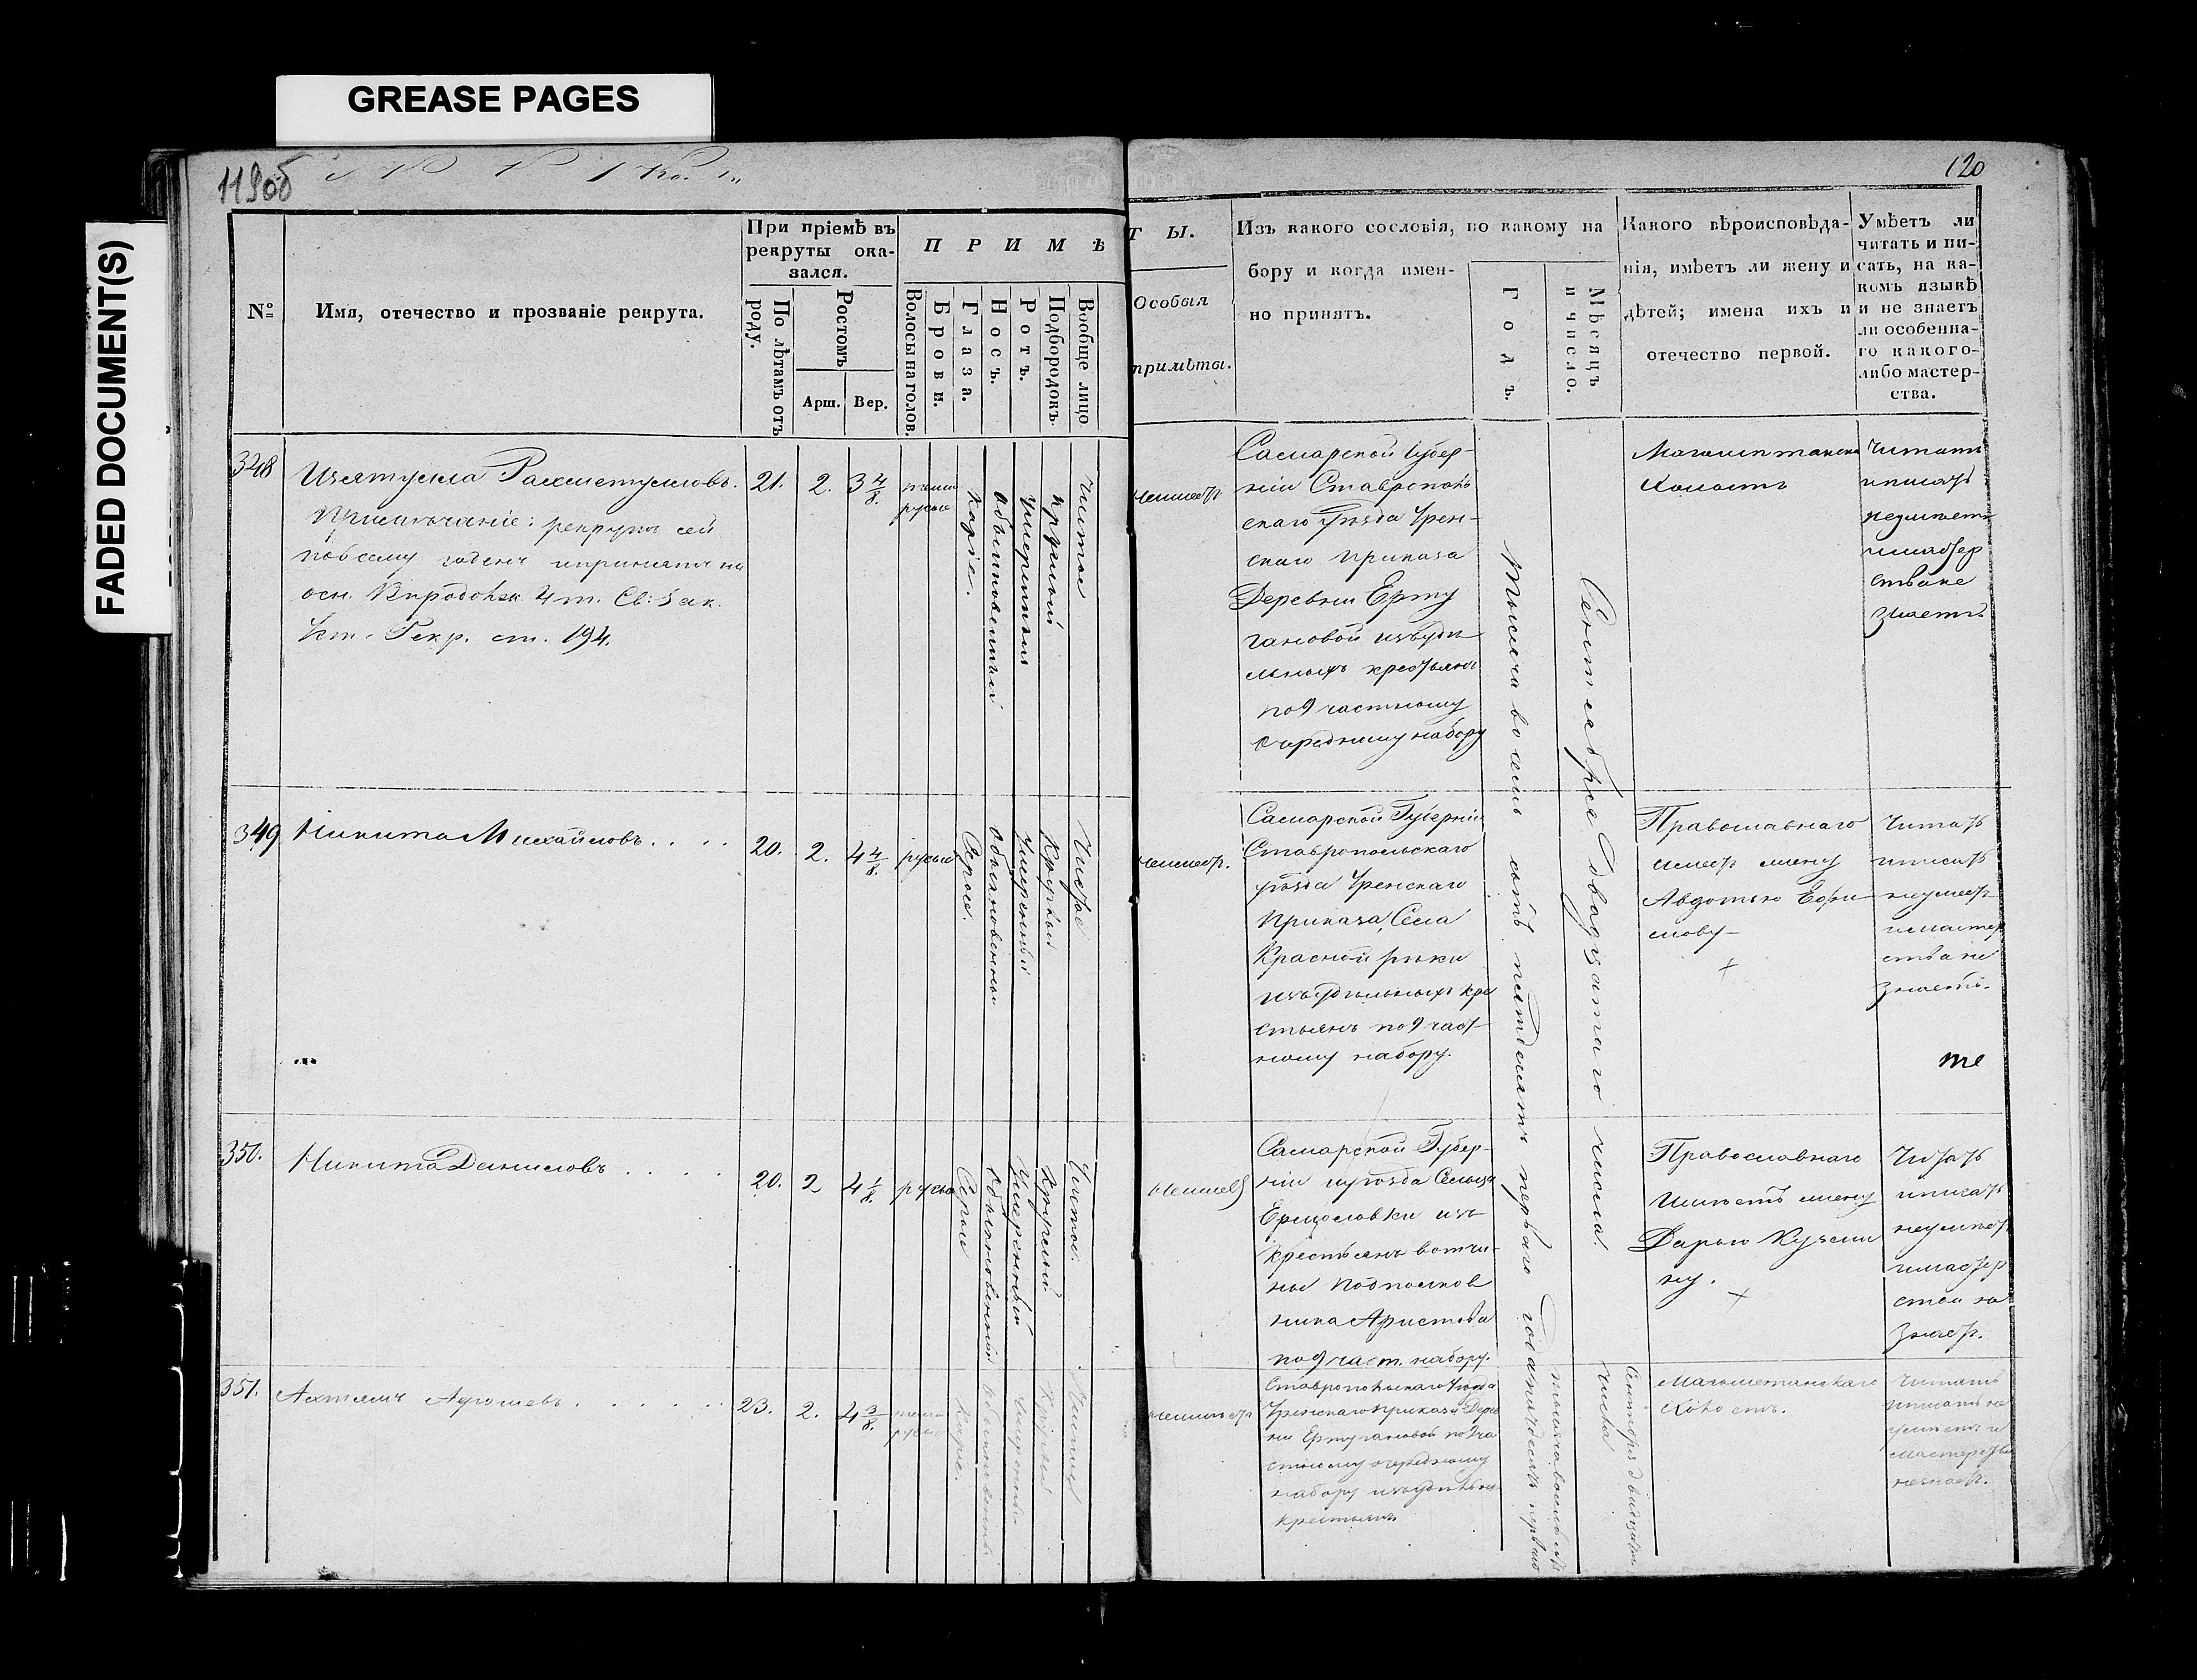 GREASE PAGES
FADED DOCUMENT(S)
119об
120
№
Имя, отечество и прозваніе рекрута.
При пріемѣ въ
рекруты ока-
зался.
По лѣтамъ отъ
роду.
Ростомъ
Арш.
Вер.
П Р И М Ѣ
Волосы на голов.
Брови.
Глаза.
Носъ.
Ротъ.
Подбородокъ
Вообще лицо
Т Ы.
Особыя
примѣты.
Изъ какого сословія, по какому на
бору и когда имен-
но принятъ.
Годъ.
Мѣсяцъ
и число.
Какого вѣроисповѣда-
нія, имѣетъ ли жену и
дѣтей; имена ихъ и
отечество первой.
Умѣетъ ли
читать и пи-
сать, на ка-
комъ языкѣ
и не знаетъ
ли особенна-
го какого-
либо мастер-
ства.
348
Рахметулловъ.
Примѣчаніе: рекрутъ сей
по всему годенъ и принятъ на
осн. 4 т. Св: Зак.
Уст. Рекр. ст. 194.
21.
2.
3 4/8.
темно
русые
Каріе.
Обыкновенный
Умеренный
Круглый
Чистое
Самарской Губер-
ніи Ставрополь
скаго Уѣзда Урен-
скаго Приказа
Деревни Ерту
гановой изъ удѣ
льныхъ крестьянъ
по 9 частному
очередному набору
Тысяча восемь сотъ пятдесятъ перваго года
Сентября двадцатаго числа.
Холостъ
Читать
и писать
неумѣетъ
и мастер
ства не
знаетъ
349
Никита Михайловъ. . . .
20.
2.
4 4/8.
русые
Серые.
Обыкновенный
Умеренный
Круглый
Чистое
неимеет.
Самарской Губерніи
Ставропольскаго
уѣзда Уренскаго
Приказа, Села
Красной рѣки
изъ удѣльныхъ кре
стьянъ по 9 част-
ному набору.
Православнаго
имеет жену
Авдотью Ефи
мову-
Читать
и писать
неумеет
и мастер
ства не
знаетъ.
те
350.
Никита Даниловъ . . . .
20.
2
4 1/8.
русые
Серые
Обыкновенный
Умеренный
Круглый
Чистое.
Самарской Губер-
ніи и уѣзда Сельца
изъ
Крестьянъ вотчи-
ны Подполков
ника Аристова
по 9 част. набору.
Православнаго
Имѣетъ жену
Дарью Кузьми
ну.
Читать
и писать
неумѣет
и мастер
ства не
знает.
351.
23.
2.
4 3/8.
темно
русые
Каріе.
Ставропольскаго Уѣзда
Уренскаго Приказа Дерев
ни Ертугановой по 9 ча
стному очередному
набору изъ удѣльных
крестьянъ
Тысяча восемьсотъ
пятьдесятъ перваго
Сентября двадцатаго
числа
Магометанскаго
Холостъ.
Читать
и писать не
умѣетъ и
мастерства
незнает.